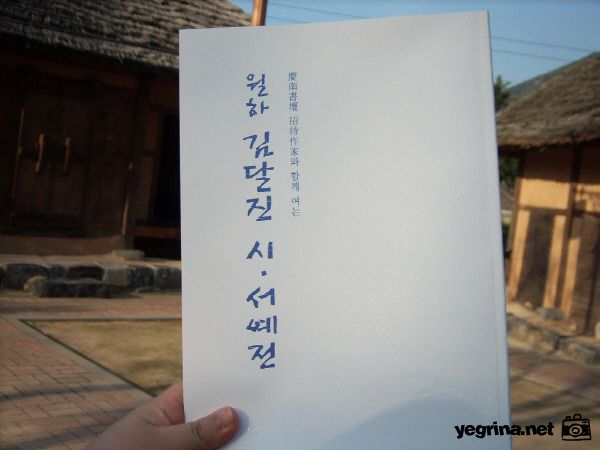 慶南書壇 招待作家와 함께 여는
월하 김달진 시·서예전
yegrina.net